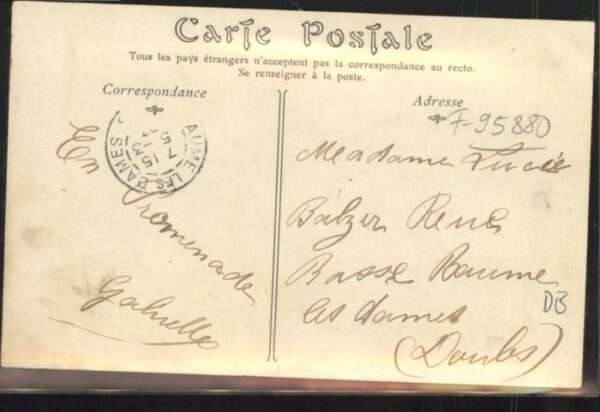 Carte Postale
Tous les pays étrangers n'acceptent pas la correspondance au recto.
Se renseigner à la poste.
Correspondance
Adresse
F-95880
BAUME LES DAMES
En Promenade
Gabrielle
Madame Lucie
Balzer René
Basse Baume
les dames
(Doubs)
DB